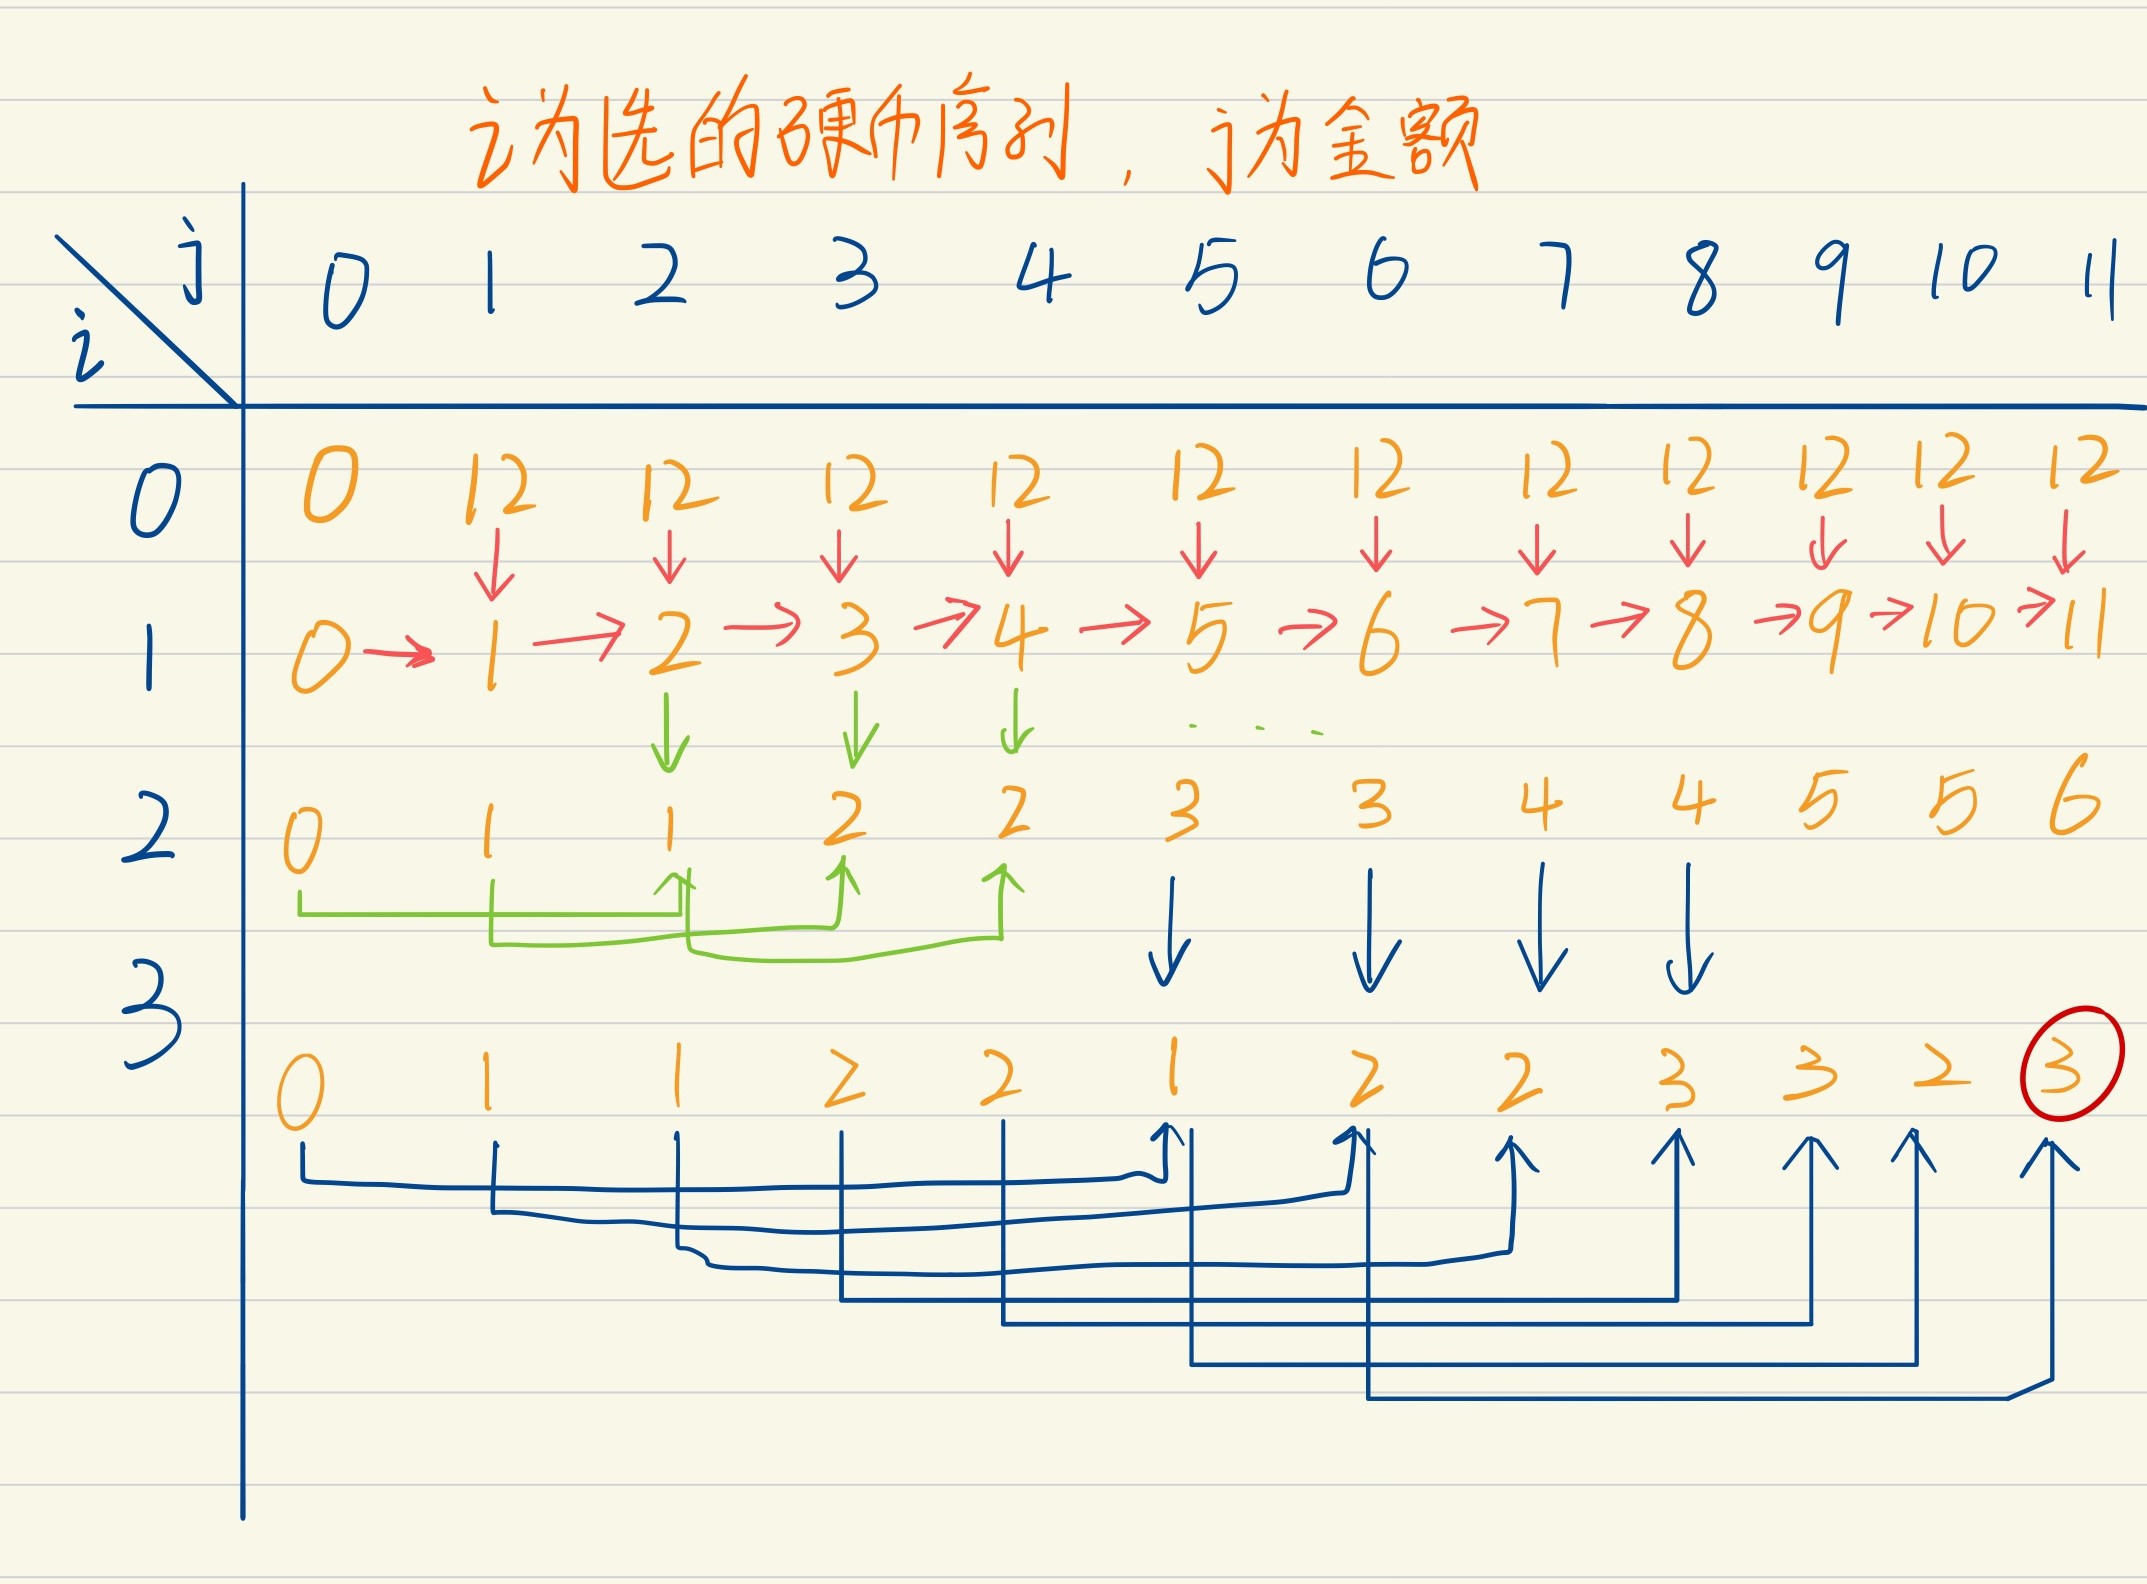 i为选的硬币序列，j为金额
j 0 1 2 3 4 5 6 7 8 9 10 11
i
0 0 12 12 12 12 12 12 12 12 12 12 12
1 0 1 2 3 4 5 6 7 8 9 10 11
2 0 1 1 2 2 3 3 4 4 5 5 6
3 0 1 1 2 2 1 2 2 3 3 2 3